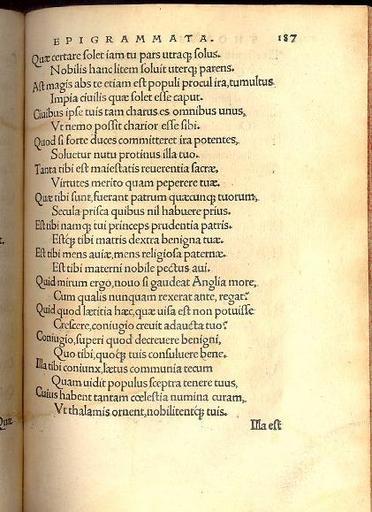 EPIGRAMMATA. 187
Quæ certare solet iam tu pars utraq; solus.
Nobilis hanc litem soluit uterq; parens.
Ast magis abs te etiam est populi procul ira, tumultus
Impia ciuilis quæ solet esse caput.
Ciuibus ipse tuis tam charus es omnibus unus,
Vt nemo possit charior esse sibi.
Quod si forte duces committeret ira potentes,
Soluetur nutu protinus illa tuo.
Tanta tibi est maiestatis reuerentia sacræ,
Virtutes merito quam peperere tuæ.
Quæ tibi sunt, fuerant patrum quæcunq; tuorum,
Secula prisca quibus nil habuere prius.
Est tibi namq; tui princeps prudentia patris.
Estq; tibi matris dextra benigna tuæ.
Est tibi mens auiæ, mens religiosa paternæ.
Est tibi materni nobile pectus aui.
Quid mirum ergo, nouo si gaudeat Anglia more,
Cum qualis nunquam rexerat ante, regat?
Quid quod lætitia hæc, quæ uisa est non potuisse
Crescere, coniugio creuit adaucta tuo?
Coniugio, superi quod decreuere benigni,
Quo tibi, quoq; tuis consuluere bene.
Illa tibi coniunx, lætus communia tecum
Quam uidit populus sceptra tenere tuus,
Cuius habent tantam cœlestia numina curam,
Vt thalamis ornent, nobilitentq; tuis.
Illa est